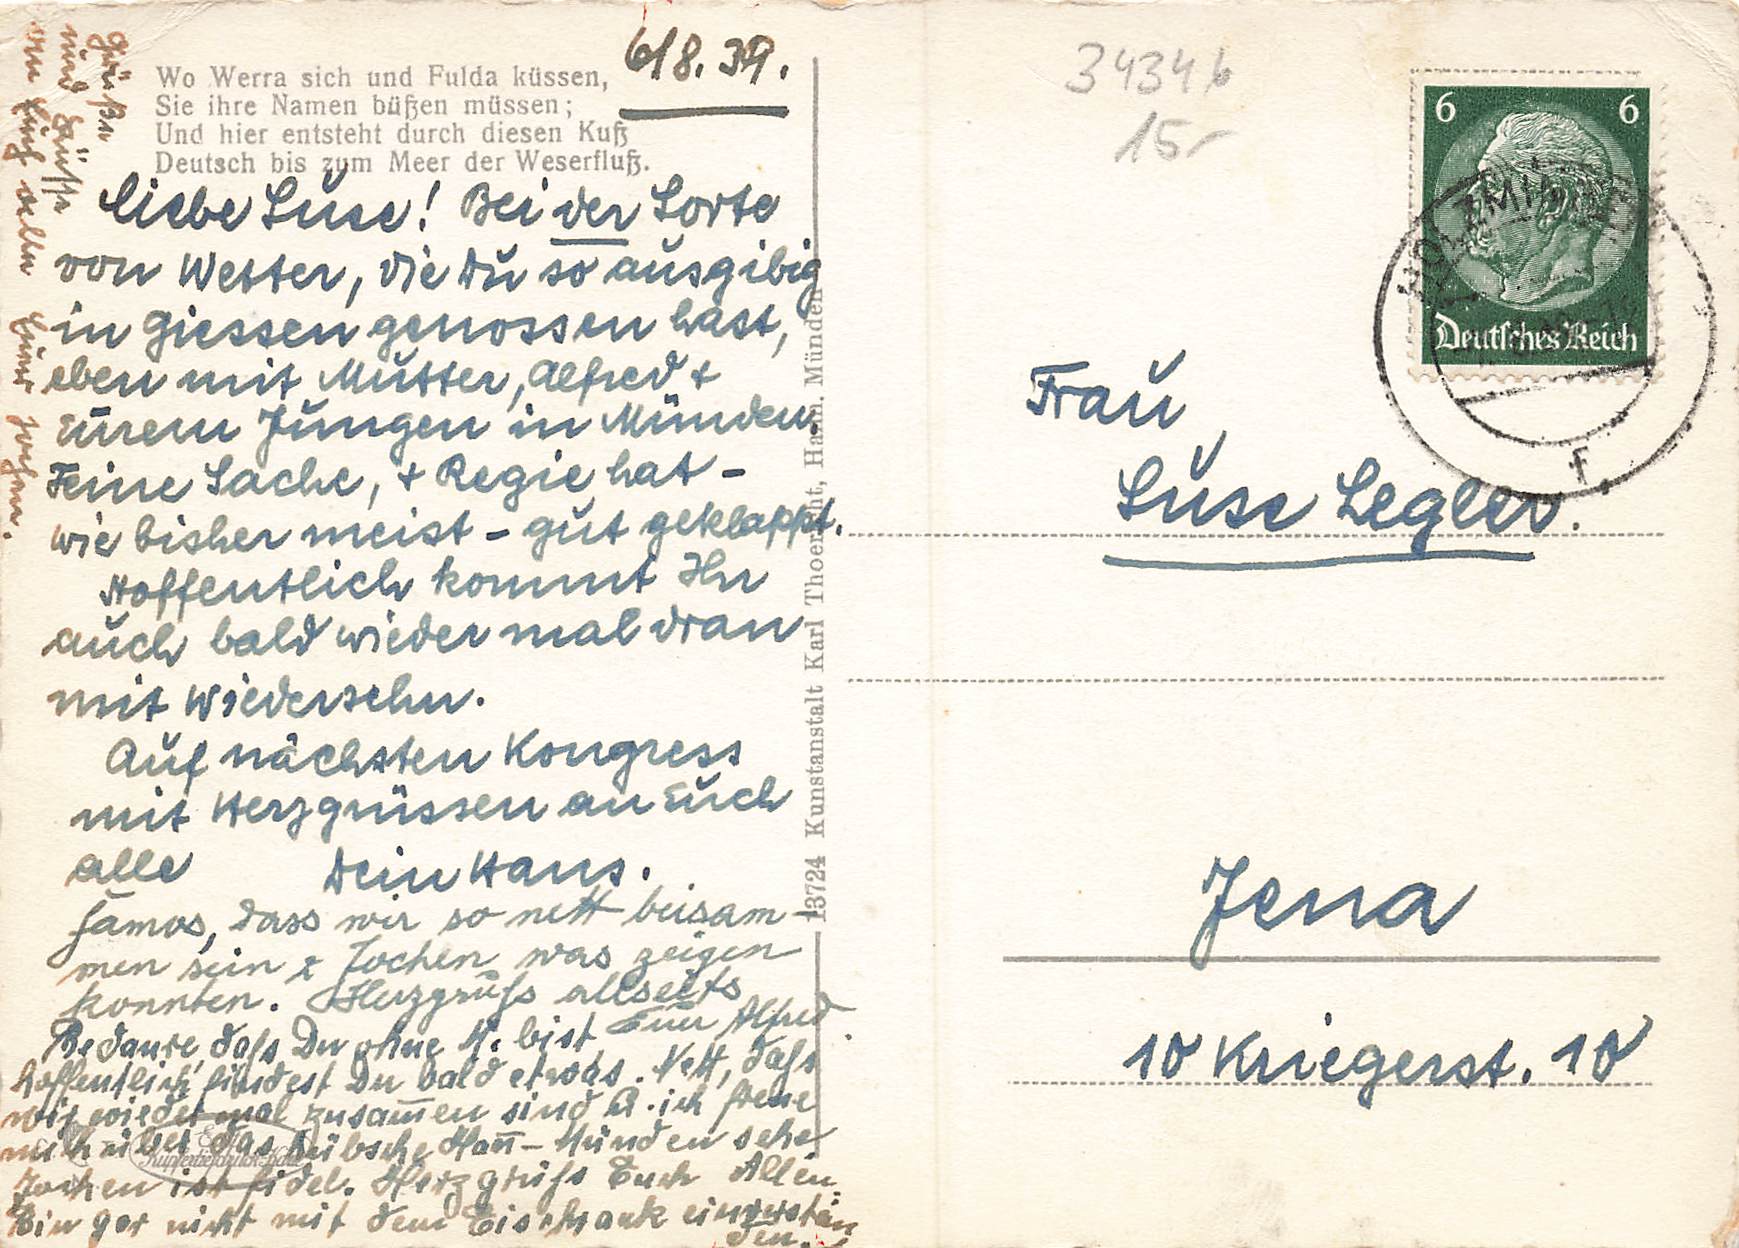 6/8.39.
Wo Werra sich und Fulda küssen,
Sie ihre Namen büßen müssen;
Und hier entsteht durch diesen Kuß
Deutsch bis zum Meer der Weserfluß.
Liebe Luse! Bei der Sorte
von Wetter, die Du so ausgibig
in Giessen genossen hast,
eben mit Mutter, Alfred +
Eurem Jungen in Münden.
Feine Sache, + Regie hat -
wie bisher meist - gut geklappt.
Hoffentlich kommt Ihr
auch bald wieder mal dran
mit Wiedersehn.
Auf nächsten Kongress
mit Herzgrüssen an Euch
alle Dein Hans.
Famos, dass wir so nett beisam-
men sein & Jochen was zeigen
konnten. Herzgruß allseits
Euer Alfred.
Bedaure, daß Du ohne M. bist
hoffentlich findest Du bald etwas. Nett, daß
wir wieder mal zusam̄en sind & ich freue
mich über das hübsche Han̄-Münden sehr
Jochen ist fidel. Herzgruß Euch Allen.
Bin gar nicht mit dem Eisschrank einverstan
den.
Grüße
und Küsse
an Euch allen Euer Jochen.
13724 Kunstanstalt Karl Thoericht, Hann. Münden
Echte
Kupfertiefdruck-Karte
34346
15-
6 6
Deutsches Reich
HOLZMINDEN
F
Frau
Luse Legler.
Jena
10 Kriegerst. 10